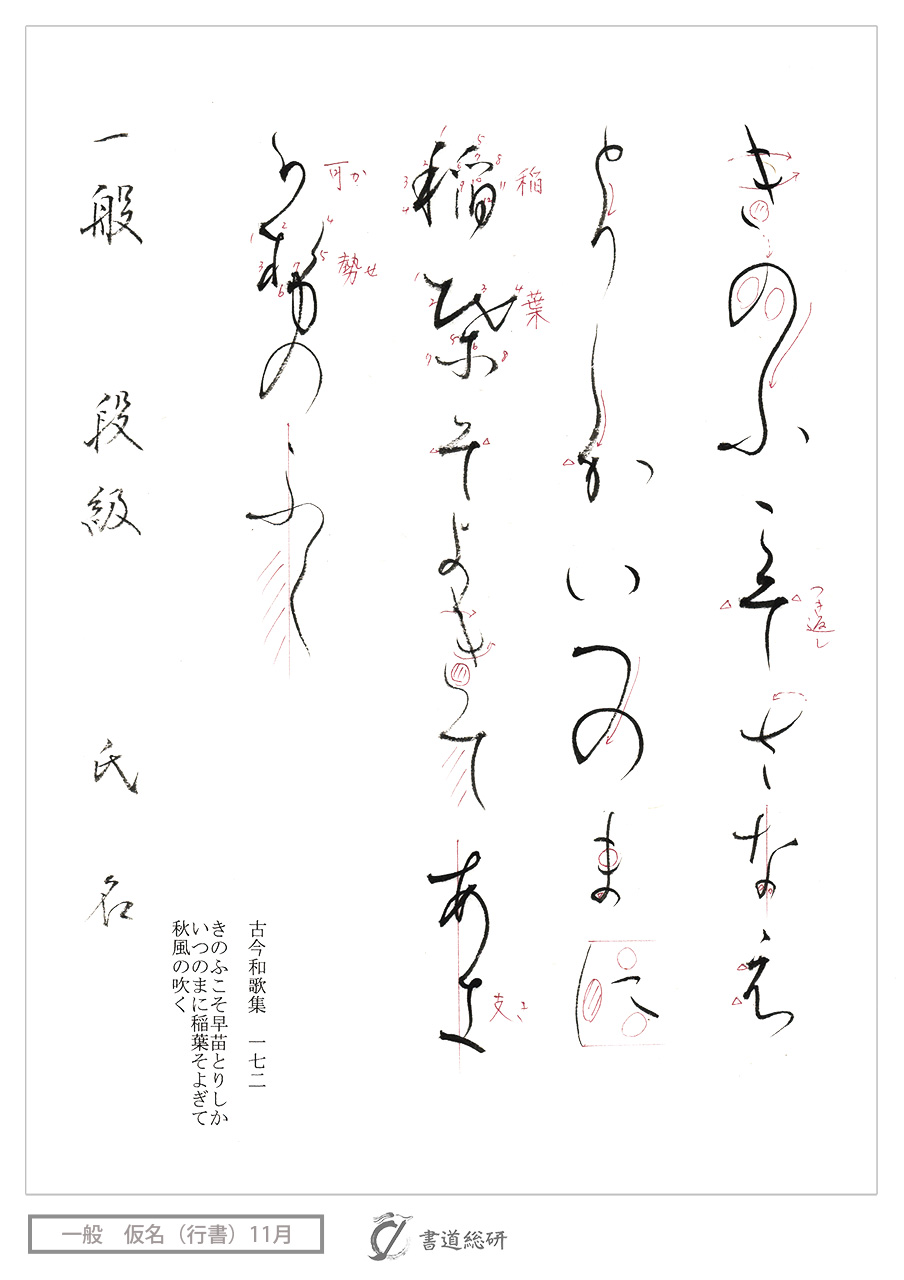 きのふこそさなえ
つき返し
とりしかいつのまに
稲葉そよきてあき
稲
葉
支き
可勢のふく
可か
勢せ
一般 段級 氏名
古今和歌集 一七二
きのふこそ早苗とりしか
いつのまに稲葉そよぎて
秋風の吹く
一般 仮名（行書）11月
書道総研